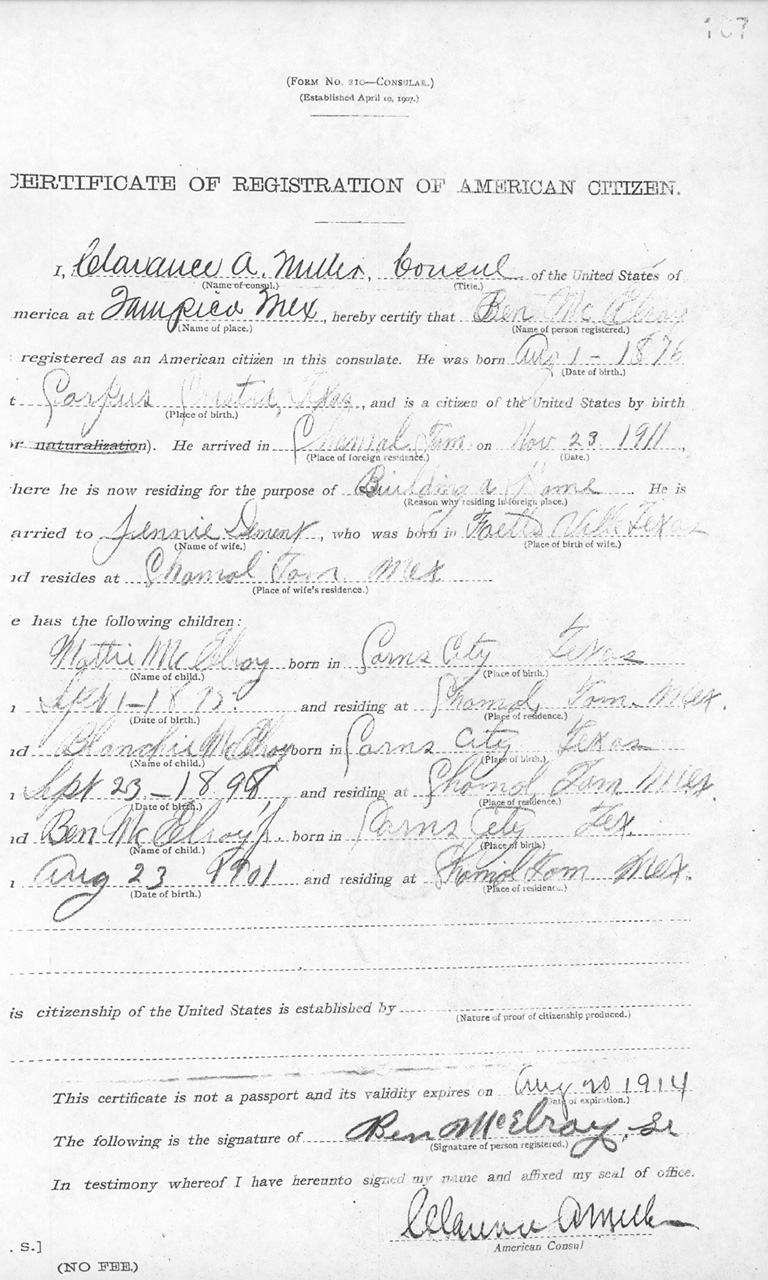 107
(FORM NO. 210—CONSULAR.)
(Established April 10, 1907.)
CERTIFICATE OF REGISTRATION OF AMERICAN CITIZEN.
I, Clarance A. Miller, Consul of the United States of
(Name of consul.) (Title.)
merica at Tampico Mex, hereby certify that Ben McElroy
(Name of place.) (Name of person registered.)
registered as an American citizen in this consulate. He was born Aug 1 - 1876
(Date of birth.)
t Corpus Cristia, Texas, and is a citizen of the United States by birth
(Place of birth.)
or naturalization). He arrived in Chamal, Tam. on Nov 23 1911,
(Place of foreign residence.) (Date.)
here he is now residing for the purpose of Building a Home. He is
(Reason why residing in foreign place.)
arried to Jennie Dement, who was born in Ville Texas
(Name of wife.) (Place of birth of wife.)
nd resides at Chamol Tam. Mex
(Place of wife's residence.)
e has the following children:
Mattie McElroy born in Carns City Texas
(Name of child.) (Place of birth.)
Sept 1 - 18 and residing at Chamol, Tam. Mex.
(Date of birth.) (Place of residence.)
nd Blanchie McElroy born in Carns City Texas
(Name of child.) (Place of birth.)
Sept 23 - 1898 and residing at Chamol, Tam Mex.
(Date of birth.) (Place of residence.)
nd Ben McElroy Jr. born in Carns City Tex.
(Name of child.) (Place of birth.)
Aug 23 1901 and residing at Chamol Tam Mex.
(Date of birth.) (Place of residence.)
is citizenship of the United States is established by
(Nature of proof of citizenship produced.)
This certificate is not a passport and its validity expires on Aug 20 1914
(Date of expiration.)
The following is the signature of Ben McElroy, Sr
(Signature of person registered.)
In testimony whereof I have hereunto signed my name and affixed my seal of office.
Clarence A Miller
American Consul
. S.]
(NO FEE.)